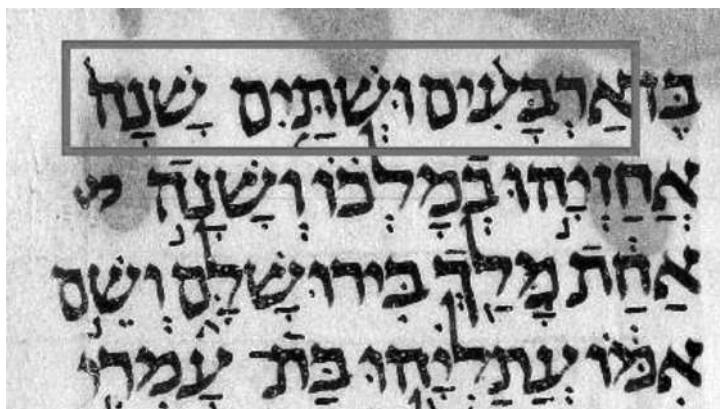 בֶּן־אַרְבָּעִים וּשְׁתַּיִם שָׁנָה
אֲחַזְיָהוּ בְמָלְכוֹ וְשָׁנָה
אַחַת מָלַךְ בִּירוּשָׁלָ͏ִם וְשֵׁם
אִמּוֹ עֲתַלְיָהוּ בַּת־ עָמְרִי